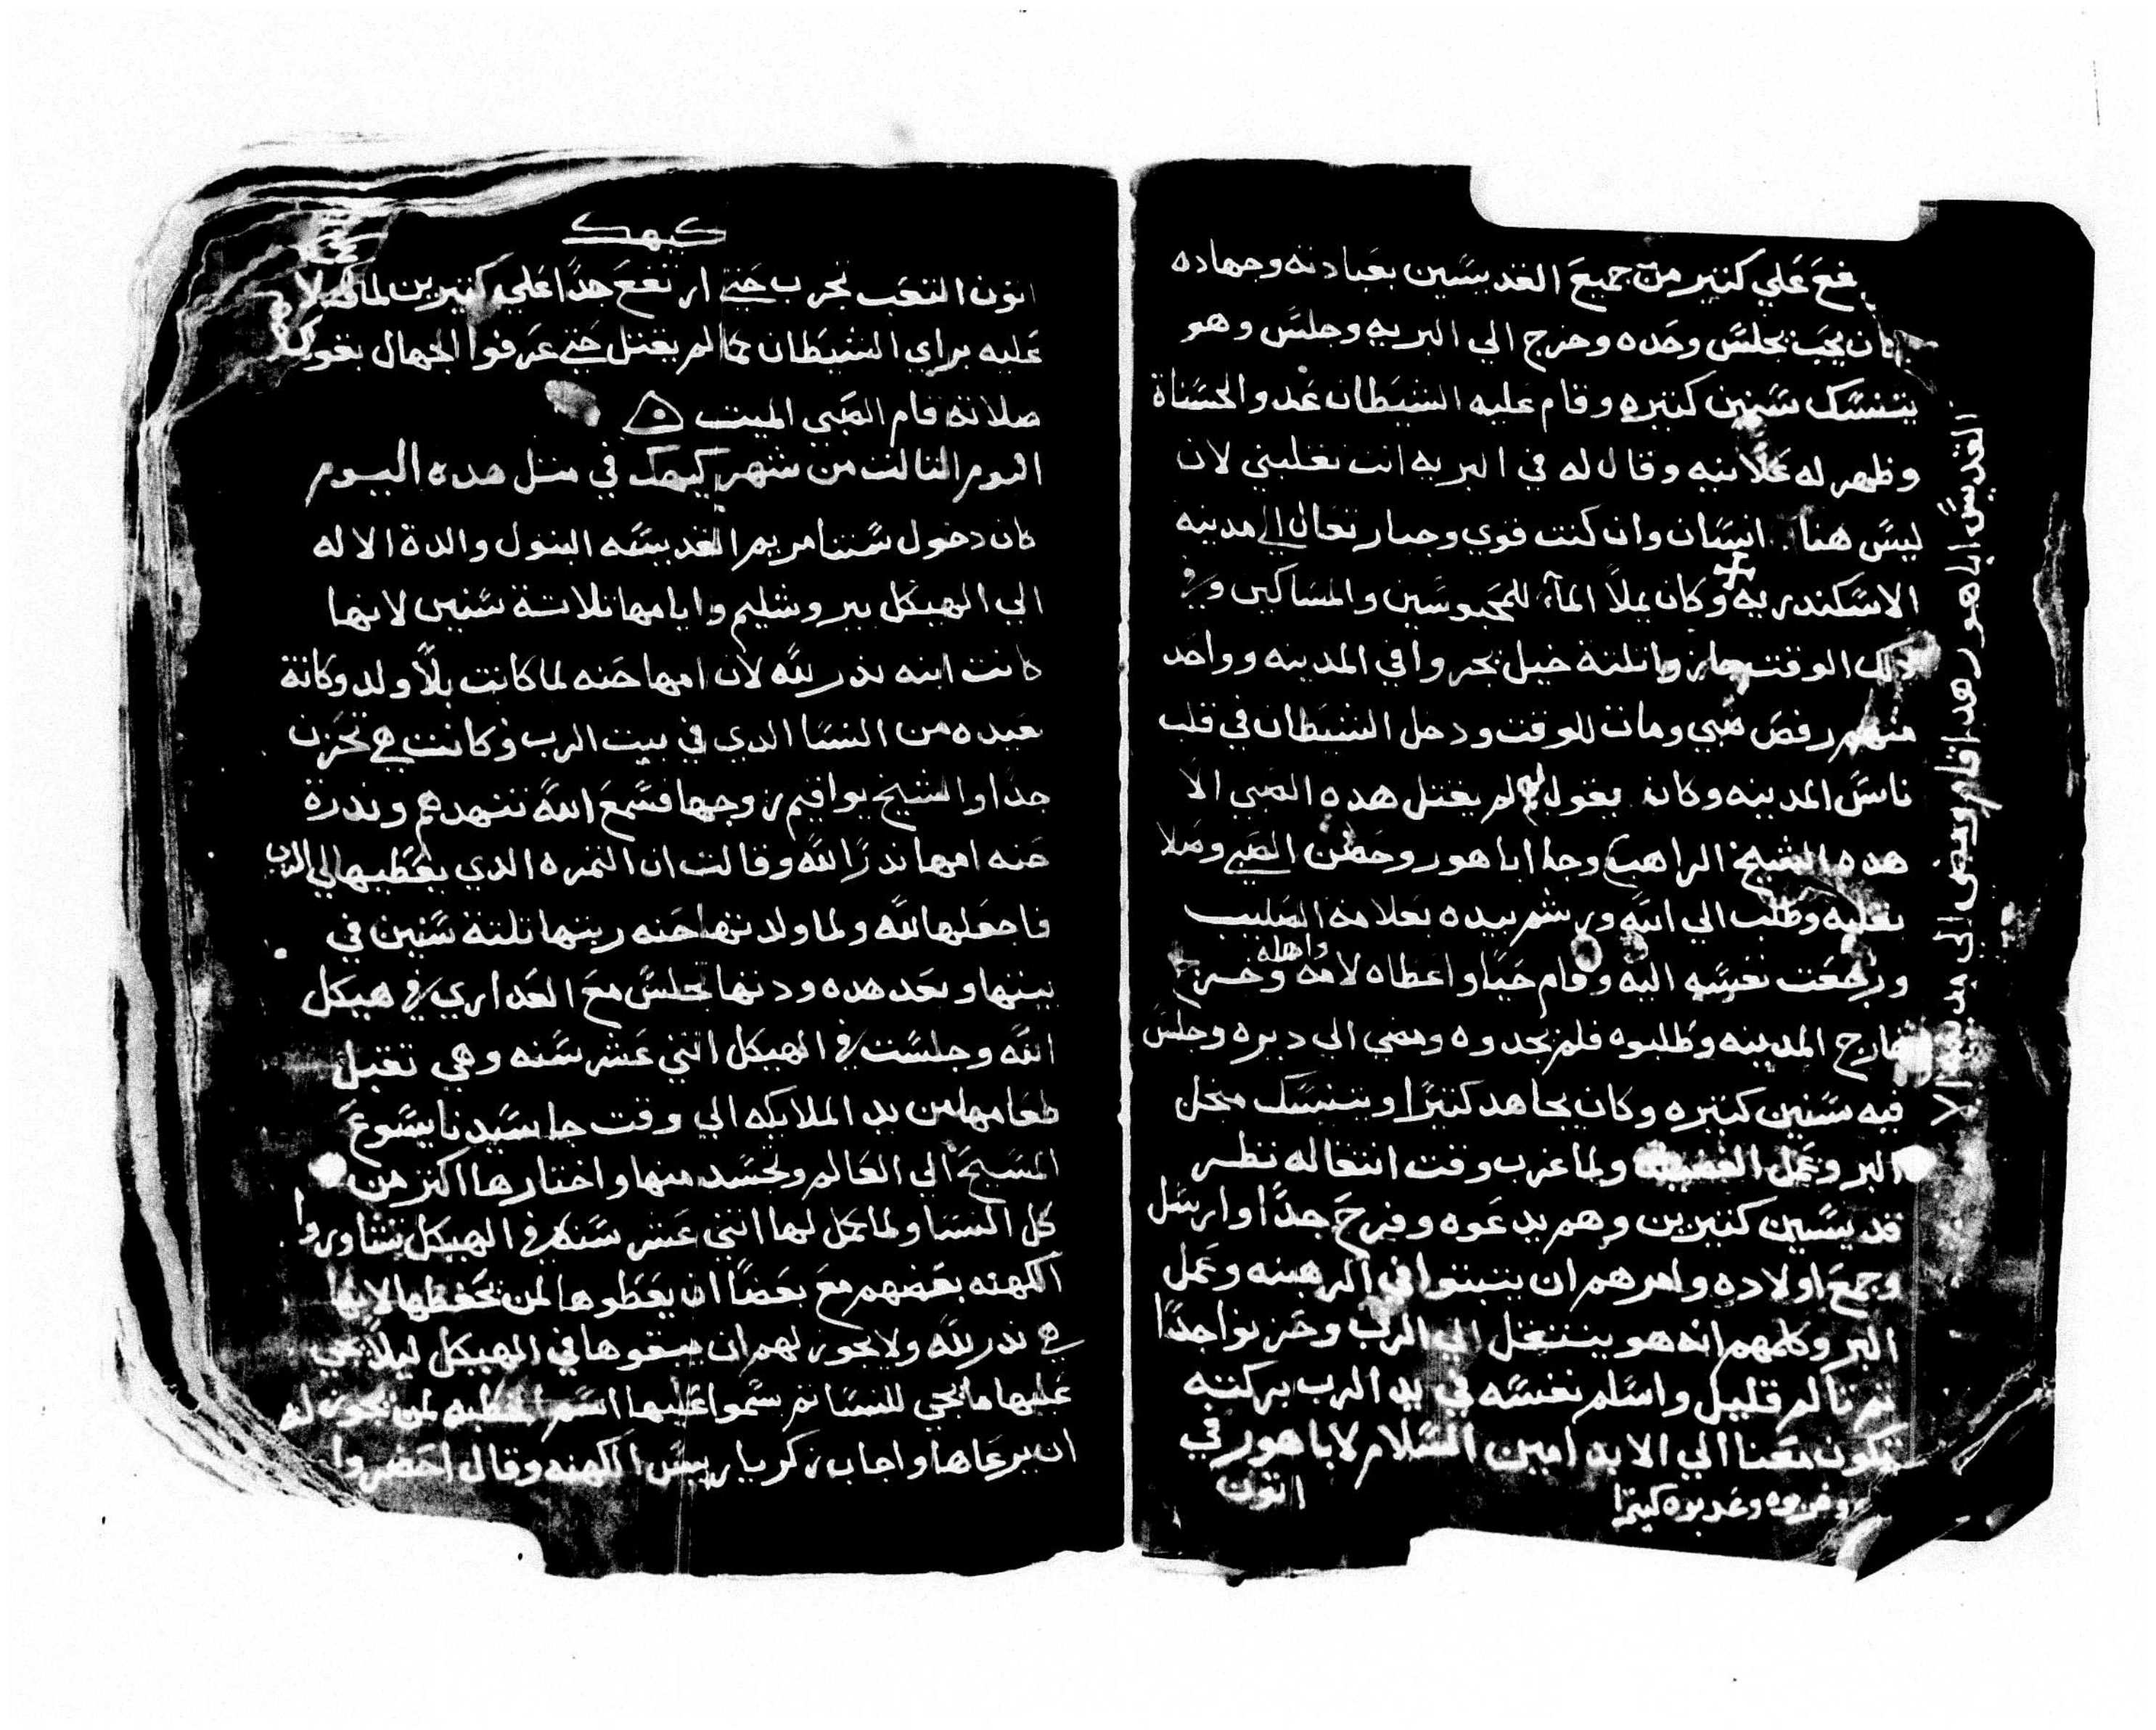 علي كتير من جميع القديسين بعبادته وجهاده
كان يحب يجلس وحده وخرج الي البريه وجلس وهو
يتنسك سنين كتيره وقام عليه الشيطان عدو الحسناة
وظهر له علانيه وقال له في البريه انت تغلبني لان
ليس هنا انسان وان كنت قوي وجبار تعال الي مدينه
الاسكندريه وكان يملا الماء للمحبوسين والمساكين وفي
ذلك الوقت تلتة خيل يجروا في المدينه وواحد
منهم رفص صبي ومات للوقت ودخل الشيطان في قلب
ناس المدينه وكانه يقول لم يقتل هده الصبي الا
هده الشيخ الراهب وجا اباهور وحضن الصبي وصلا
بقلبه وطلب الي الله ورشم بيده بعلامة الصليب
ورجعت نفسه اليه وقام حيا واعطاه لامه واهله وخرج
خارج المدينه وطلبوه فلم يجدوه ومضي الي ديره وجلس
فيه سنين كتيره وكان يجاهد كتيرا ويتنسك
البر وعمل ولما قرب وقت انتقاله نظر
قديسين كتيرين وهم يدعوه وفرح جدا وارسل
وجمع اولاده وامرهم ان يتبتوا في الرهبنه وعمل
البر وكلمهم انه هو ينتقل الي الرب وحزنوا جدا
تم تالم قليل واسلم نفسه في يد الرب بركته
تكون معنا الي الابد امين السلام لاباهور في
اتون
وعديوه كتيرا
القديس اباهور هدا قام ومضي الي مدينة الا
كيهك
اتون التعب تجرب حتي ارتفع جدا علي كتيرين لما
عليه براي الشيطان لم يقتل حتي عرفوا الجهال بقوة
صلاته قام الصبي الميت
اليوم التالت من شهر كيهك في متل هده اليوم
كان دخول ستنا مريم القديسه البتول والدة الاله
الي الهيكل بيروشليم وايامها تلاتة سنين لانها
كانت ابنه ندر لله لان امها حنه لما كانت بلا ولد وكانة
بعيده من النسا الدي في بيت الرب وكانت هي تحزن
جدا والشيخ يواقيم زوجها فسمع الله تنهدهم وندرة
حنه امها ندرا لله وقالت ان التمره الدي يعطيها لي الرب
فاجعلها لله ولما ولدتها حنه ربتها تلتة سنين في
بيتها وبعد هده ودتها تجلس مع العداري في هيكل
الله وجلست في الهيكل اتني عشر سنه وهي تقبل
طعامها من يد الملايكه الي وقت جا سيدنا يسوع
المسيح الي العالم وتجسد منها واختارها اكتر من
كل النسا ولما كمل لها اتني عشر سنه في الهيكل تشاوروا
الكهنه بعضهم مع بعضا ان يعطوها لمن يحفظها لانها
هي ندر لله ولا يجوز لهم ان يبقوها في الهيكل ليلا يجي
عليها ما يجي للنسا تم سموا عليها اسم الخطبه لمن يجوز له
ان يرعاها واجاب زكريا رييس الكهنه وقال احضروا